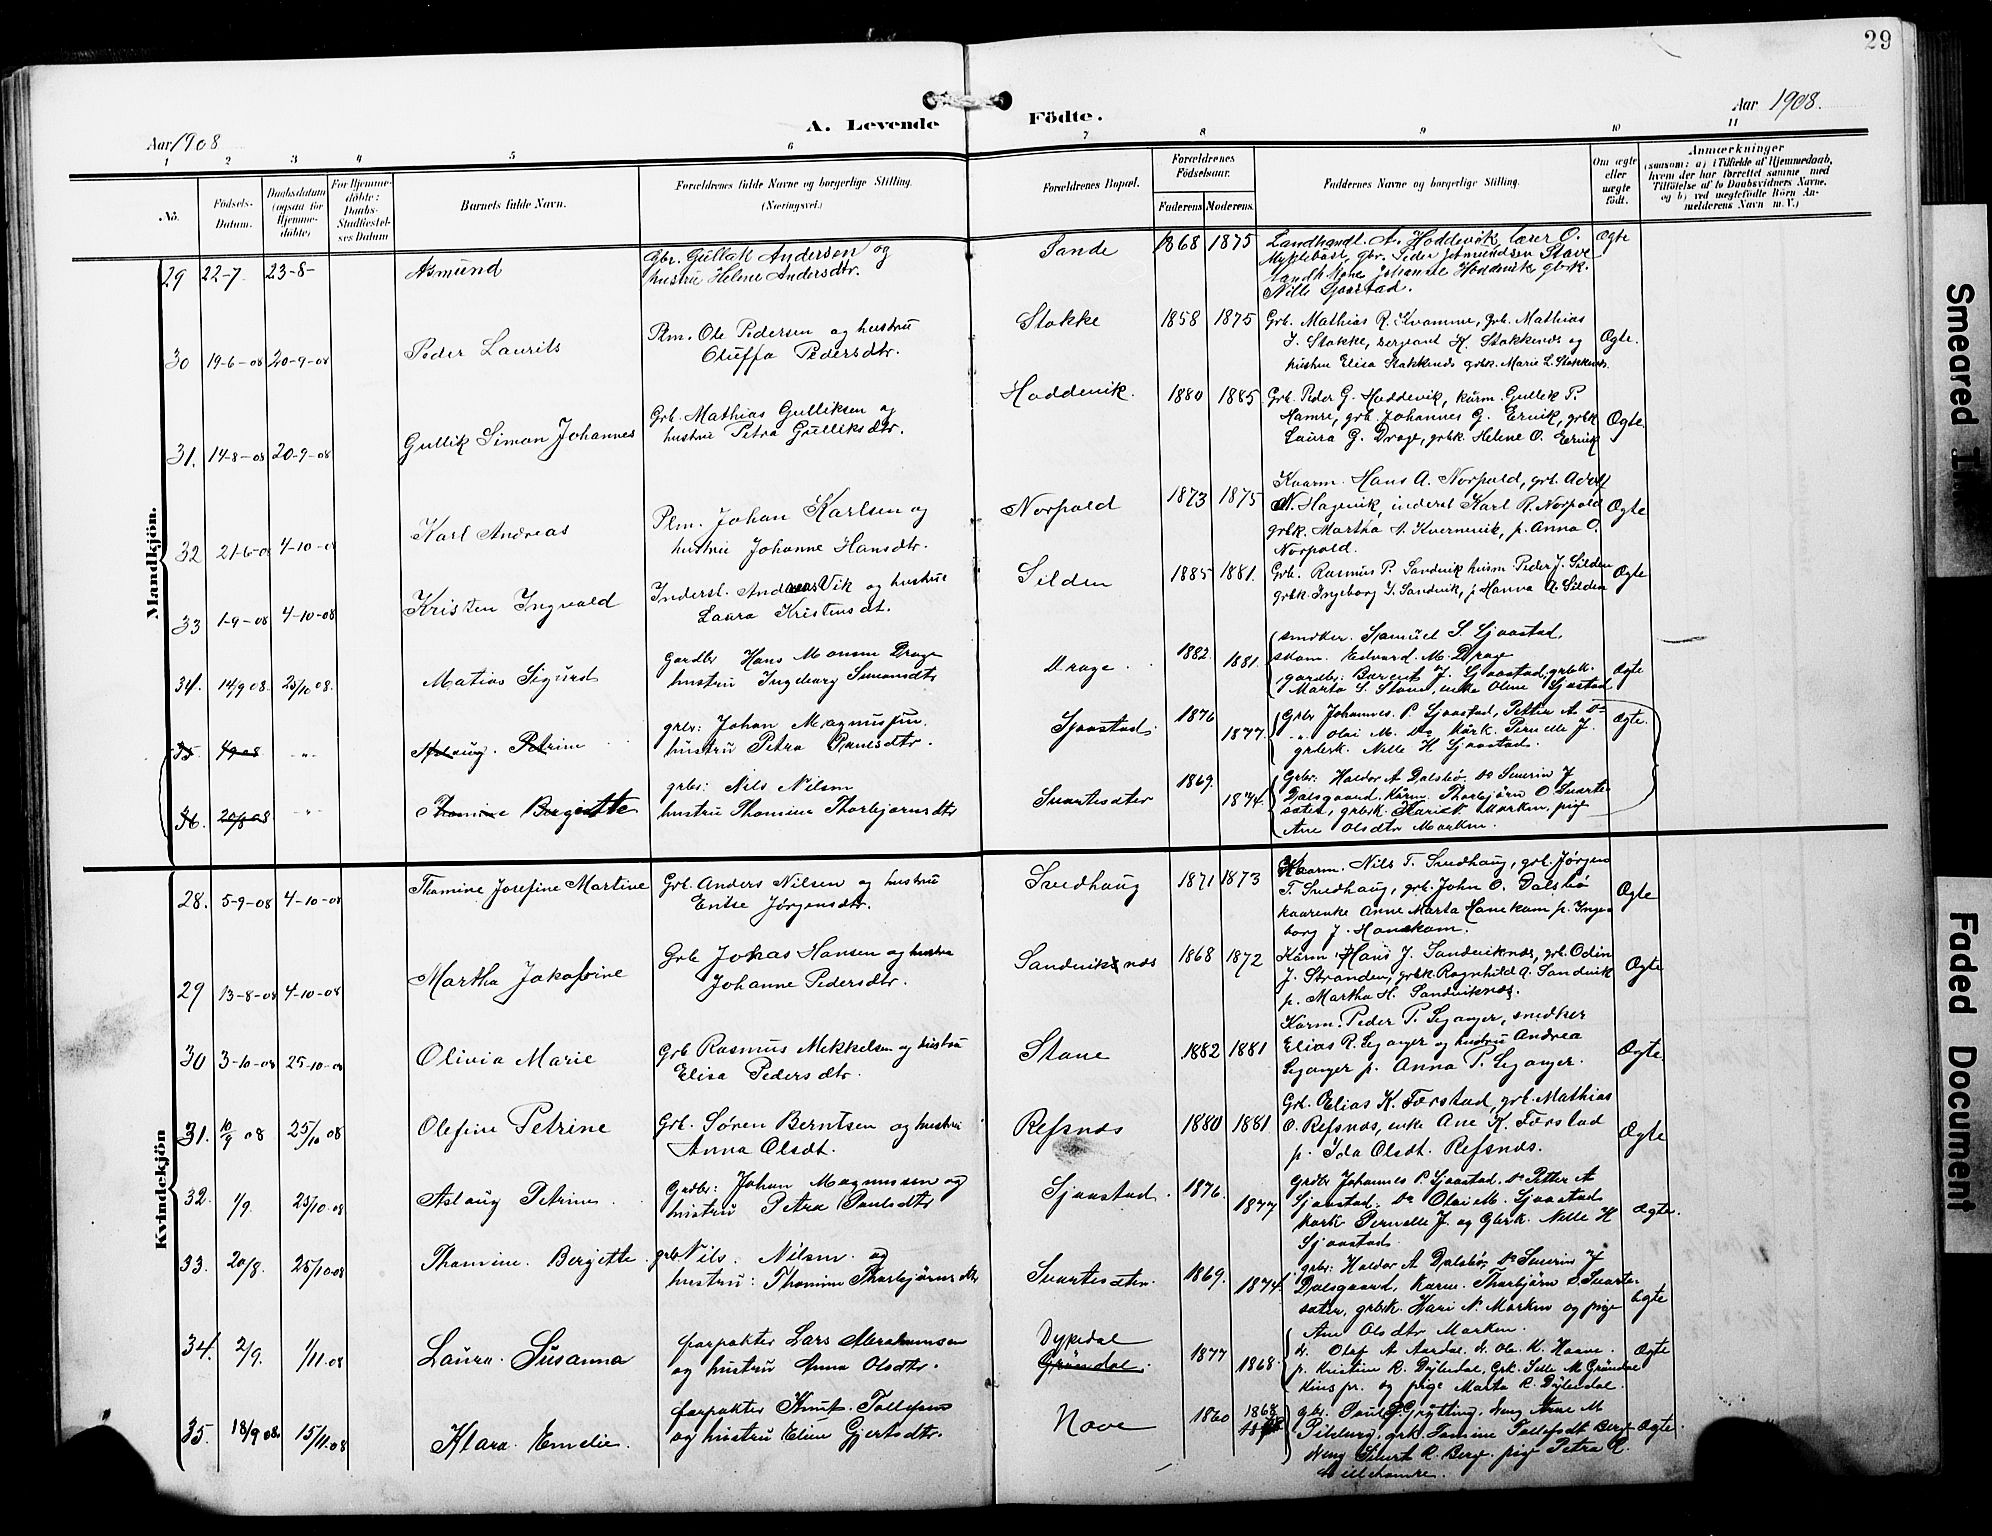 29
A. Levende Födte.
Aar 1908
Aar 1908.
1 2 3 4 5 6 7 8 9 10 11
No.
Födsels-
Datum.
Daabsdatum
(ogsaa for
Hjemme-
döbte)
For Hjemme-
döbte:
Daabs-
Stadfæstel-
ses Datum
Barnets fulde Navn.
Forældrenes fulde Navne og borgerlige Stilling.
(Næringsvei.)
Forældrenes Bopæl.
Forældrenes
Födselsaar.
Faderens. Moderens.
Faddernes Navne og borgerlige Stilling.
Om ægte
eller
uægte
født.
Anmærkninger
(saasom: a) i Tilfælde af Hjemmedaab,
hvem der har forrettet samme med
Tilföielse af to Daabsvidners Navne,
og b) ved uægtefödte Börn An-
melderens Navn m. V.)
Mandkjön.
29 22-7. 23-8- Asmund
Gbr. Gullak Andersen og
hustru Helene Andersdtr.
Sande 1868 1875
Landhandl. A. Hoddevik, lærer O.
Myklebost, gbr. Peder Asmundsen Stave
landh. kone Johanne Hoddevik gbrk.
Nille Sjaastad.
Ægte
30 19-6-08 20-9-08 Peder Laurits
Plm. Ole Pedersen og hustru
Oluffa Pedersdtr.
Stokke 1858 1875
Grb. Mathias R. Kvamme, grb. Mathias
J. Stokke, sergeant K. Stokkenes og
hustru Elisa Stokkenes grbk. Marie L. Stokkenes
Ægte.
31. 14-8-08 20-9-08 Gullik Simon Johannes
Grb. Mathias Gulliksen og
hustru Petra Gulliksdtr.
Hoddevik. 1880 1885
Grb. Peder G. Hoddevik, kårm. Gullik P.
Hamre, grb Johannes G. Ervik, grbk
Laura G. Drage, grbk. Helene O. Ervik
Ægte
32 21-6-08 4-10-08 Karl Andreas
Plm. Johan Karlsen og
hustru Johanne Hansdtr.
Norpold 1873 1875
Kaarm. Hans A. Norpold, grb. Adolf
N. Hagevik, inderst Karl R. Norpold
grbk. Martha A. Kvernevik, p. Anna O.
Norpold.
Ægte
33 1-9-08 4-10-08 Kristen Ingvald
Inderst. Andreas Vik og hustru
Laura Kristensdt.
Silden 1885 1881.
Grb. Rasmus P. Sandvik husm. Peder J. Silden
grbk. Ingeborg J. Sandvik, p Hanna A. Silden
Ægte
34. 14/9 08. 25/10 08. Matias Sigurd
Gardbr Hans Monsen Drage
hustru Ingeborg Simonsdtr
Drage. 1882. 1881.
smeker. Samuel S. Sjaastad,
skom. Edvard. M. Drage
gardbr: Berent J. Sjaastad, grbk.
Marta S. Stave, enke Oline Sjastad
Ægte
35 1/9 08 " Aslaug. Petrine
grbr: Johan Magnussen.
hustru Petra Paulsdtr.
Sjaastad. 1876 1877.
Grbr Johannes. P. Sjaastad, Petter A. Do
" Olai M. Do kårk. Pernelle J.
grbrk. Nille H Sjaastad.
Ægte.
36. 20/8 08 " Thomine Bergitte
grbr: Nils Nilsen
hustru Thomine Thorbjørnsdtr
Svartesæter 1869. 1874.
Grbr: Haldor A Dalsbø, Do Severin J
Dalsgaard, Kårm. Thorbjørn O. Svarte-
sæter, grbrk. Hari N Morken, pige
Ane Olsdtr Morken.
Kvindekjön
28. 5-9-08 4-10-08 Thomine Josefine Martine
Grb. Anders Nilsen og hustru
Entse Jørgensdtr.
Svedhaug 1871 1873
Kaarm. Nils T. Svedhaug, grb. Jørgen
T. Svedhaug, grb. John O. Dalsbø
kaarenke Anne Marta Hanekam p. Inge-
borg J. Hanekam.
Ægte
29 13-8-08 4-10-08 Martha Jakobine
Grb Johas Hansen og hustru
Johanne Pedersdtr.
Sandviksnæs 1868 1872
Kårm. Hans J. Sandviknæs, grb. Odin
J. Stranden, grbk. Ragnhild A. Sandvik
p. Martha H. Sandviknæs.
Ægte
30 3-10-08 25-10-08 Olivia Marie
Grb Rasmus Mekkelsen og hustru
Elisa Pedersdtr.
Stave 1882 1881
Karm. Peder P. Leganger, snedker
Elias R. Leganger og hustru Andrea
Leganger p. Anna P. Leganger.
Ægte
31. 10/9 08 25/10 08 Olefine Petrine
Grb. Søren Berntsen og hustru
Anna Olsdt.
Refsnæs 1880 1881
Grb. Elias K. Førstad, grb. Mathias
O. Refsnæs, enke Ane K. Førstad
p. Ida Olsdt. Refsnæs.
Ægte
32. 1/9. 25/10-08 Aslaug Petrine.
Grdbr: Johan Magnussen og
hustru Petra Paulsdtr
Sjaastad. 1876. 1877
Grdbr Johannes P. Sjaastad, Do Petter A
Sjaastad. Do Olai M. Sjaastad
kark Pernelle J. og Gbrk. Nille H
Sjaastad.
Ægte.
33. 20/8. 25/10 08 Thomine. Bergitte.
grbr Nils. Nilsen. og
hustru: Thomine Thorbjørnsdtr
Svartesæter. 1869. 1874.
grbr: Haldor A Dalsbø, Do Severin J
Dalsgaard, karm. Thorbjørn O. Svarte-
sæter, grbrk. Hari N. Morken og pige
Ane Olsdtr Morken.
Ægte
34. 2/9. 1/11-08 Laura. Susanna
forpakter Lars Abrahamsen
og hustru Anna Olsdtr.
Dyledal
Grøndal. 1877 1868.
d. Olaf A Aardal, d. Ole K. Haave.
p. Kristine R. Dyledal, Grk. Sille M Grøndal
og pige Marta R. Dyledal.
Ægte
35. 18/9 08. 15/11.08 Klara. Emelie.
forpakter Knut. Tollefsen
og hustru Eline Gjertsdtr.
Nave 1860 1868
gbr. Paul Grytting, Ane M
grk. Tomine Tollefsdt Berg
Sivert R. Berg. pige Petra R.
Lillehamre.
Ægte.
Smeared
Faded Document